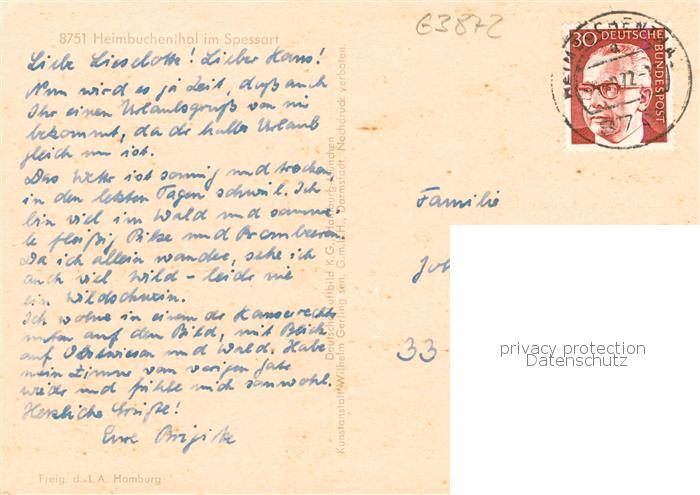 8751 Heimbuchenthal im Spessart
Liebe Lieselotte! Lieber Hans!
Nun wird es ja Zeit, daß auch
Ihr einen Urlaubsgruß von mir
bekommt, da der halbe Urlaub
gleich um ist.
Das Wetter ist sonnig und trocken,
in den letzten Tagen schwül. Ich
bin viel im Wald und samme-
le fleißig Pilze und Brombeeren.
Da ich allein wander, sehe ich
auch viel Wild - leider nie
ein Wildschwein.
Ich wohne in einem der Häuser rechts
unten auf dem Bild, mit Blick
auf Obstwiesen und Wald. Habe
mein Zimmer vom vorigen Jahr
wieder und fühle mich sauwohl.
Herzliche Grüße!
Eure Brigitte
Freig. d. L.A. Hamburg
Deutsche Luftbild K.G., Hamburg-München
Kunstanstalt Wilhelm Gerling sen. G.m.b.H., Darmstadt. Nachdruck verboten.
G3872
30 DEUTSCHE
BUNDESPOST
Familie
33
privacy protection
Datenschutz